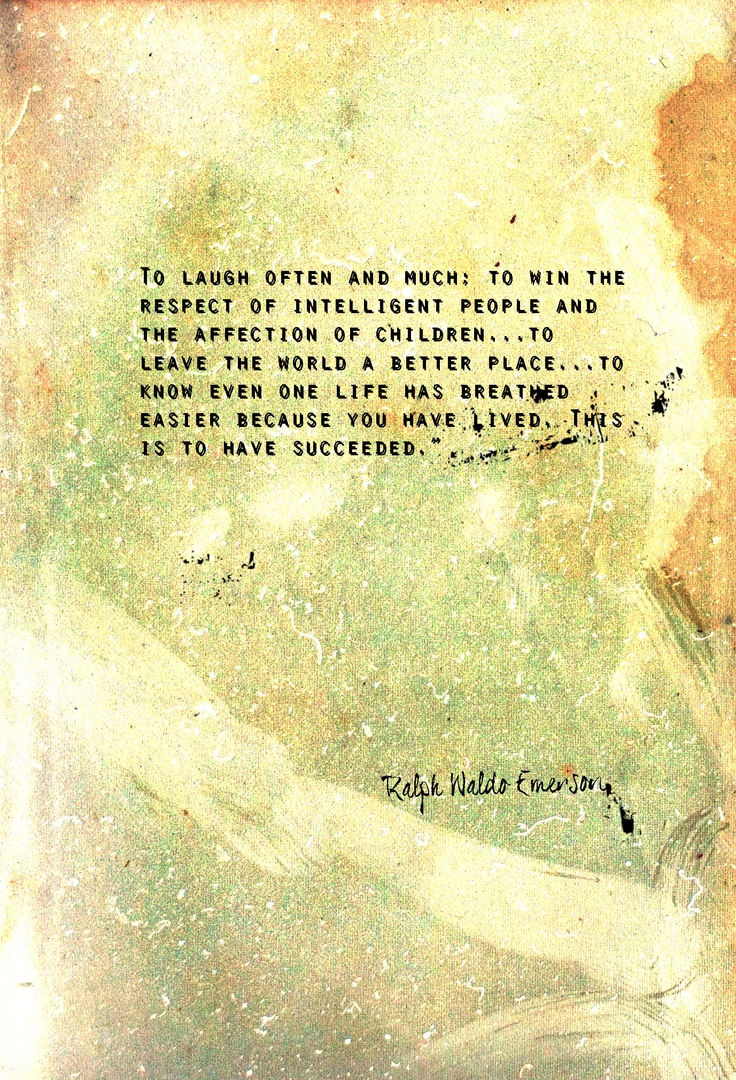 To laugh often and much; to win the
respect of intelligent people and
the affection of children...to
leave the world a better place...to
know even one life has breathed
easier because you have lived. This
is to have succeeded."
Ralph Waldo Emerson